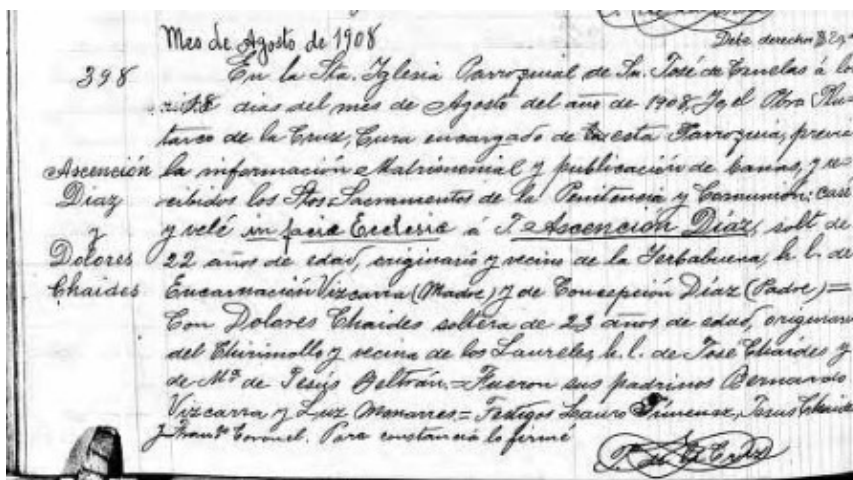 Mes de Agosto de 1908
Debe derechos $2
398
En la Sta. Iglesia Parroquial de Sn. José de Canelas á los
18 dias del mes de Agosto del año de 1908, Yo el Pbro Plu-
tarco de la Cruz, Cura encargado de esta Parroquia, previa
la información Matrimonial y publicación de banas, y re-
cibidos los Stos. Sacramentos de la Penitencia y Comunion; casé
y velé in facie Ecclesie á J. Ascención Díaz, solt. de
22 años de edad, originario y vecino de la Yerbabuena, h. l. de
Encarnación Vizcarra (Madre) y de Concepción Díaz (Padre) =
Con Dolores Chaides soltera de 23 años de edad, originaria
del Chirimollo y vecina de los Laureles, h. l. de José Chaides y
de Mª de Jesús Beltrán. = Fueron sus padrinos Bernardo
Vizcarra y Luz Monarres. = Testigos Lauro Jimenez, Jesus Chaides
y Franco Coronel. Para constancia lo firmé
P. de la Cruz
Ascención
Diaz
y
Dolores
Chaides